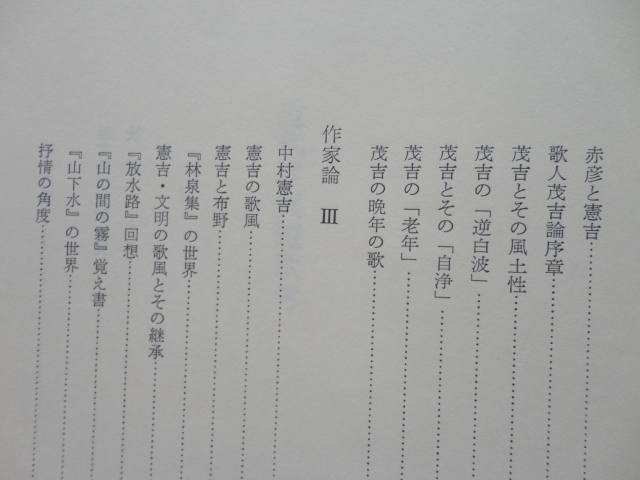 赤彦と憲吉
歌人茂吉論序章
茂吉とその風土性
茂吉の「逆白波」
茂吉とその「自浄」
茂吉の「老年」
茂吉の晩年の歌
作家論 Ⅲ
中村憲吉
憲吉の歌風
憲吉と布野
『林泉集』の世界
憲吉・文明の歌風とその継承
『放水路』回想
『山の間の霧』覚え書
『山下水』の世界
抒情の角度